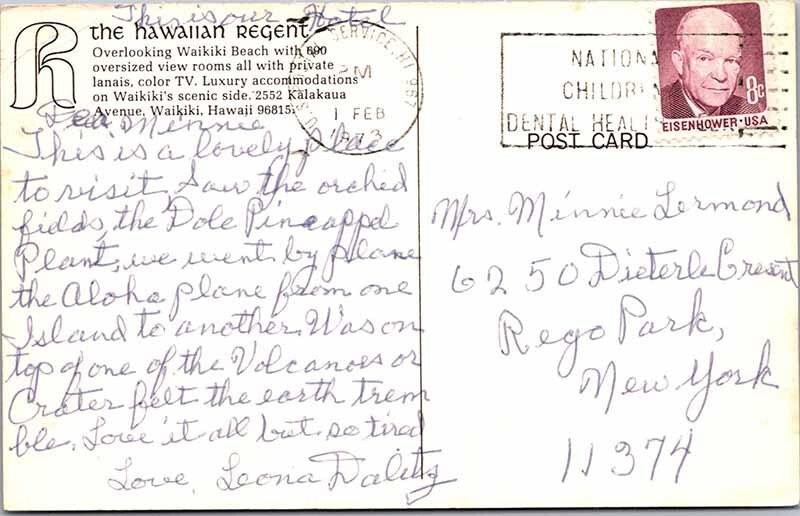 This is our Hotel
the hawaiian regent
Overlooking Waikiki Beach with 690
oversized view rooms all with private
lanais, color TV. Luxury accommodations
on Waikiki's scenic side. 2552 Kalakaua
Avenue, Waikiki, Hawaii 96815.
SERVICE, HI 967
PM
1 FEB
1973
NATIONA
CHILDRE
DENTAL HEAL
8c
EISENHOWER · USA
POST CARD
Dear Minnie
This is a lovely place
to visit, Saw the orchid
fields, the Dole Pineappel
Plant, we went by plane
the Aloha plane from one
Island to another. Was on
top of one of the Volcanoes or
Crater felt the earth trem
ble. Love it all but so tired
Love, Leona Dalitz
Mrs. Minnie Lermond
6250 Dieterle Cresent
Rego Park,
New York
11374